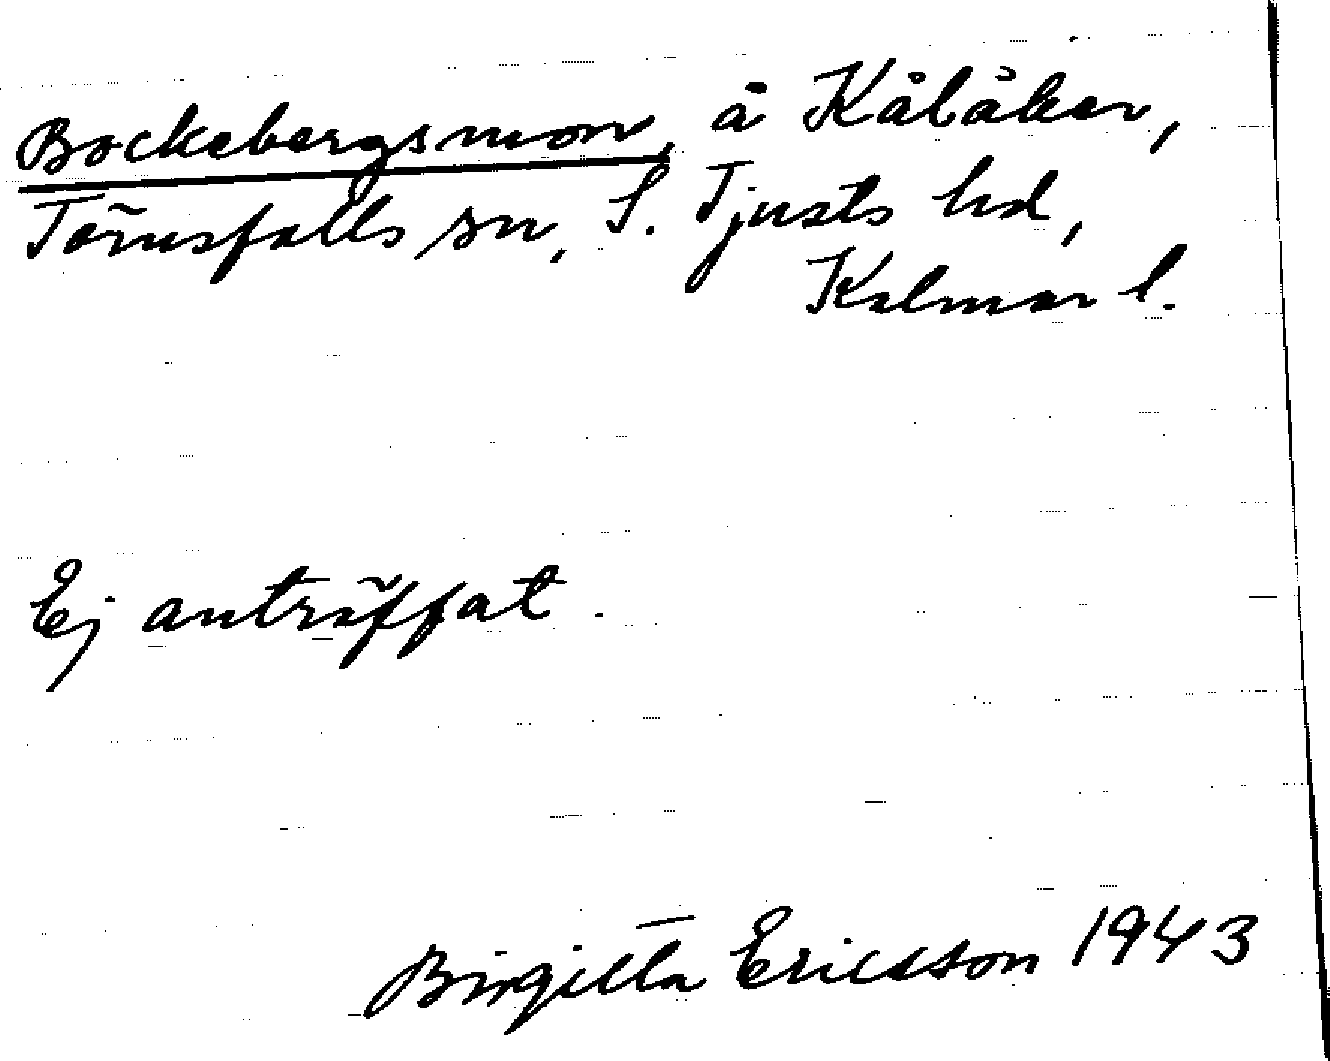 Bockebergsmon, å Kålåker,
Törnsfalls sn, S. Tjusts hd,
Kalmar l.
Ej anträffat.
Birgitta Ericsson 1943